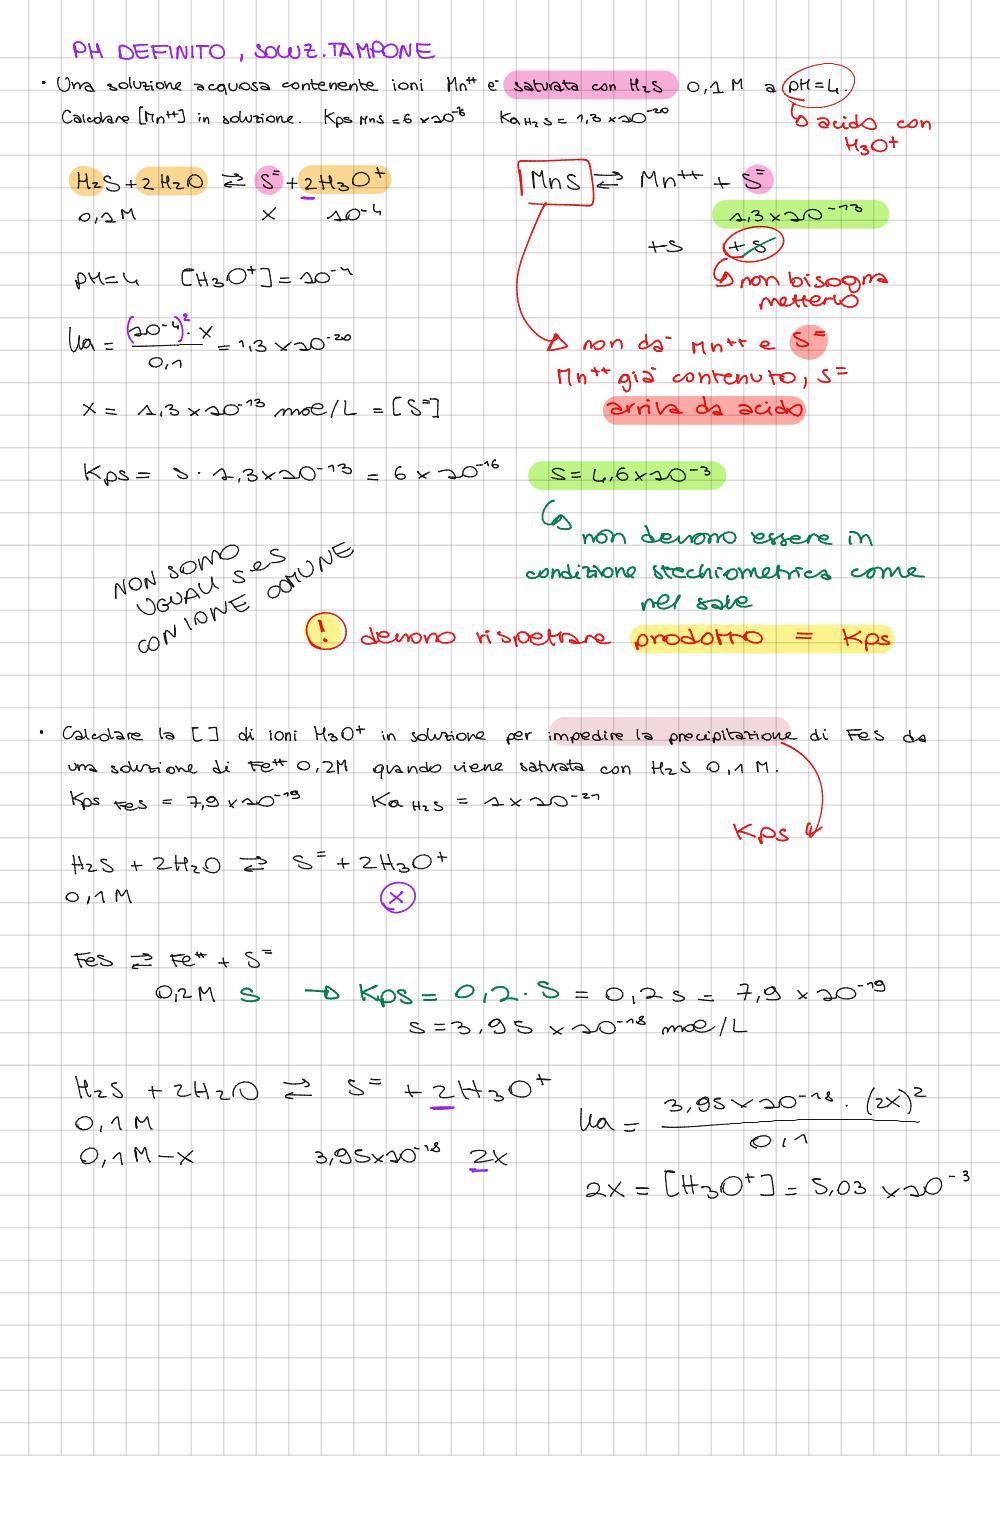 PH DEFINITO, SOLUZ. TAMPONE
• Una soluzione acquosa contenente ioni Mn⁺⁺ e' saturata con H₂S 0,1 M a pH=4.
Calcolare [Mn⁺⁺] in soluzione. Kps MnS = 6 × 10⁻¹⁶ Ka H₂S = 1,3 × 10⁻²⁰
↳ acido con
H₃O⁺
H₂S + 2H₂O ⇄ S⁼ + 2H₃O⁺
0,1 M x 10⁻⁴
MnS ⇄ Mn⁺⁺ + S⁼
1,3 × 10⁻¹³
+s +s
↳ non bisogna
metterlo
pH=4 [H₃O⁺] = 10⁻⁴
Ka = (10⁻⁴)² · x / 0,1 = 1,3 × 10⁻²⁰
→ non da' Mn⁺⁺ e S⁼
Mn⁺⁺ già contenuto, S⁼
arriva da acido
x = 1,3 × 10⁻¹³ mol/L = [S⁼]
Kps = s · 1,3 × 10⁻¹³ = 6 × 10⁻¹⁶ s = 4,6 × 10⁻³
↳ non devono essere in
condizione stechiometrica come
nel sale
NON SONO
UGUALI s e s
CON IONE COMUNE
! devono rispettare prodotto = Kps
• Calcolare la [ ] di ioni H₃O⁺ in soluzione per impedire la precipitazione di FeS da
una soluzione di Fe⁺⁺ 0,2M quando viene saturata con H₂S 0,1 M.
Kps FeS = 7,9 × 10⁻¹⁹ Ka H₂S = 1 × 10⁻²¹
Kps
H₂S + 2H₂O ⇄ S⁼ + 2H₃O⁺
0,1 M x
FeS ⇄ Fe⁺⁺ + S⁼
0,2 M s → Kps = 0,2 · s = 0,2 s = 7,9 × 10⁻¹⁹
s = 3,95 × 10⁻¹⁸ mol/L
H₂S + 2H₂O ⇄ S⁼ + 2H₃O⁺
0,1 M
0,1 M - x 3,95 × 10⁻¹⁸ 2x
Ka = 3,95 × 10⁻¹⁸ · (2x)² / 0,1
2x = [H₃O⁺] = 5,03 × 10⁻³